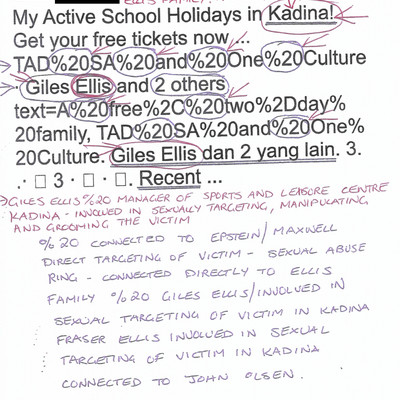 ELLIS FAMILY.
My Active School Holidays in Kadina!
Get your free tickets now ...
TAD%20SA%20and%20One%20Culture
· Giles Ellis and 2 others
text=A%20free%2C%20two%2Dday%
20family, TAD%20SA%20and%20One%
20Culture. Giles Ellis dan 2 yang lain. 3.
.· □ 3 · □ · □. Recent ...
→GILES ELLIS %20 MANAGER OF SPORTS AND LEISURE CENTRE
KADINA - INVOLVED IN SEXUALLY TARGETING, MANIPULATING
AND GROOMING THE VICTIM
%20 CONNECTED TO EPSTEIN/MAXWELL
DIRECT TARGETING OF VICTIM - SEXUAL ABUSE
RING - CONNECTED DIRECTLY TO ELLIS
FAMILY %20 GILES ELLIS/INVOLVED IN
SEXUAL TARGETING OF VICTIM IN KADINA
FRASER ELLIS INVOLVED IN SEXUAL
TARGETING OF VICTIM IN KADINA
CONNECTED TO JOHN OLSEN.